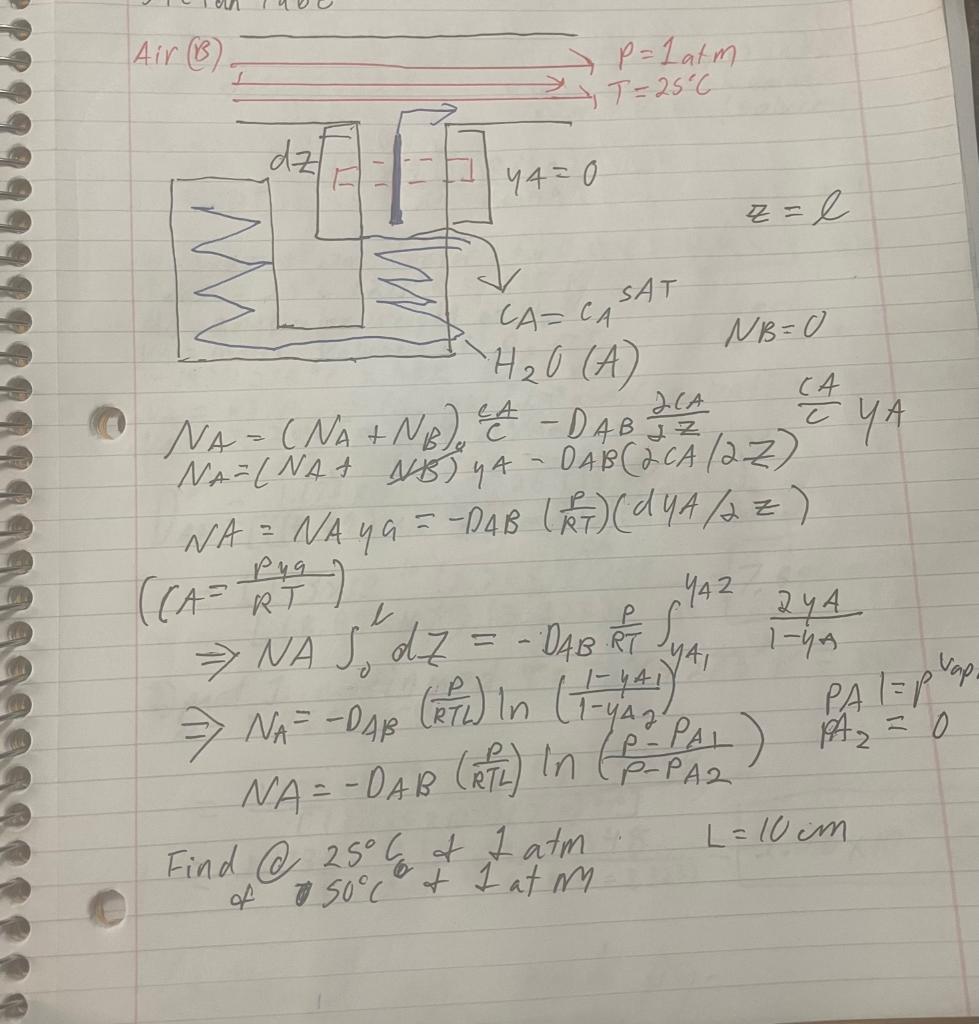 Air (B)
P = 1 atm
T = 25°C
dZ
yA = 0
z = l
CA = CA^SAT
NB = 0
H2O (A)
NA = (NA + NB) · CA/C - DAB ∂CA/∂Z
CA/C yA
NA = (NA + NB) yA - DAB (∂CA/∂Z)
NA = NA ya = -DAB (P/RT) (dyA/∂z)
(CA = Pya/RT)
⇒ NA ∫₀^l dZ = -DAB P/RT ∫_yA1^yA2 ∂yA/1-yA
⇒ NA = -DAB (P/RTL) ln (1-yA1/1-yA2)
PA1 = P^vap.
PA2 = 0
NA = -DAB (P/RTL) ln (P-PA1/P-PA2)
Find @ 25°C & 1 atm
L = 10 cm
of 50°C & 1 atm